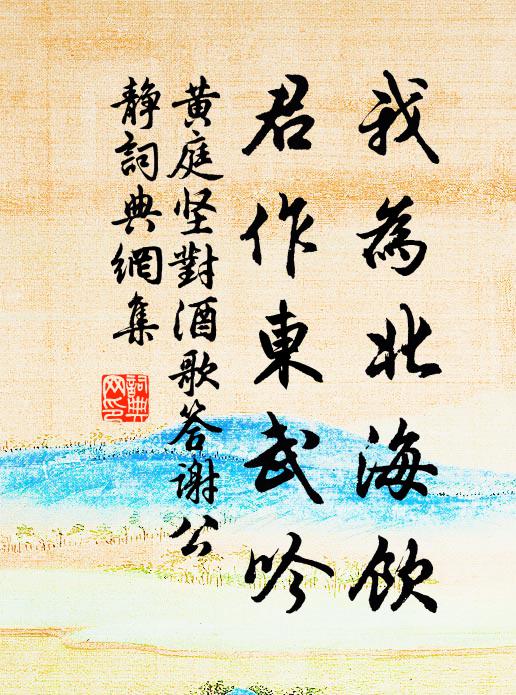 我為北海飲
君作東武吟
黄庭坚對酒歌答謝公
靜詞典網集
詞典
网印